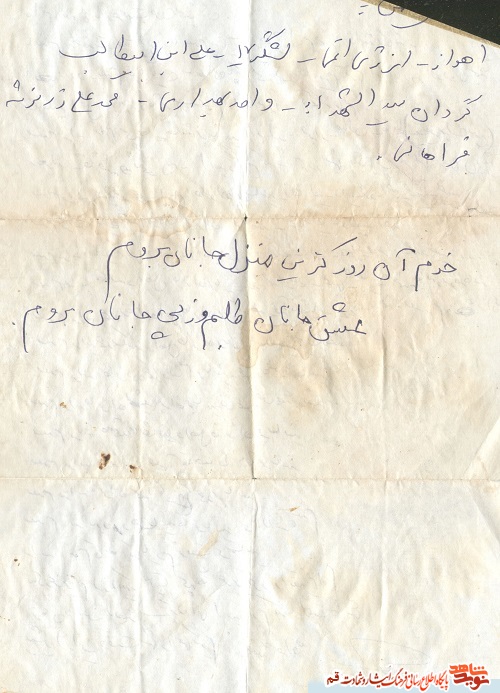 اهواز - انرژی اتمی - لشگر ۱۷ - علی ابن ابیطالب
گردان سید الشهداء - واحد بهداری - محمد علی
فراهانی .
خرم آن روز کزین منزل جانان بروم
عشق جانان طلبم و ز پی جانان بروم .
نوید شاهد
پایگاه اطلاع رسانی فرهنگ ایثار و شهادت قم